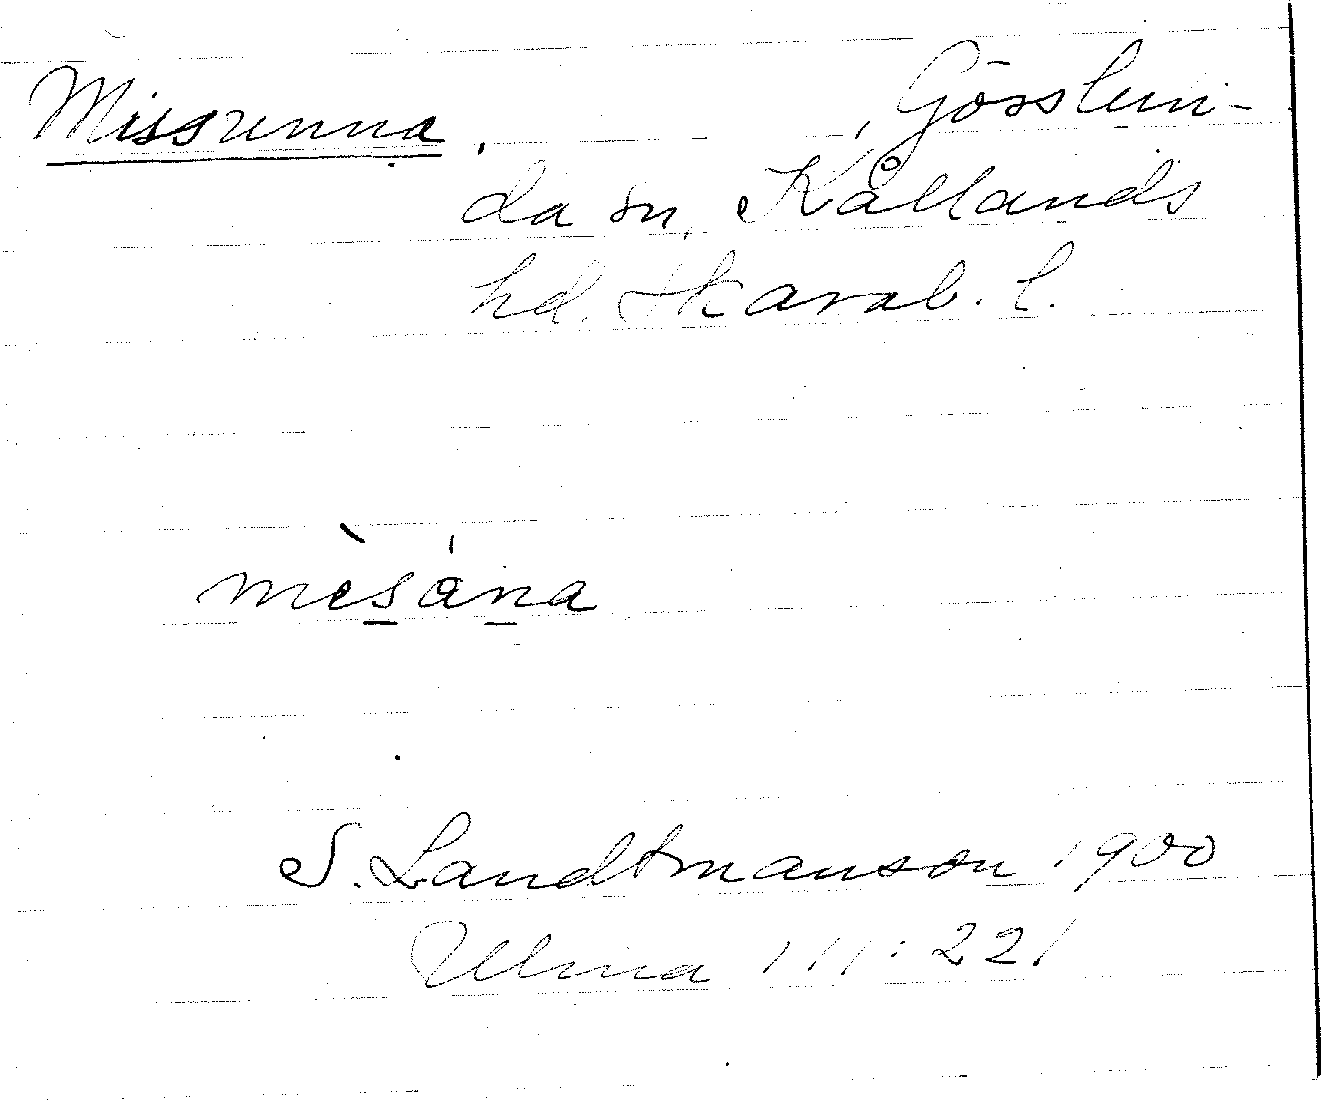 Missunna. , Gösslun-
da sn, Kållands
hd. Skarab. l.
mèsȧna
S. Landtmanson 1900
Ulma 111:221